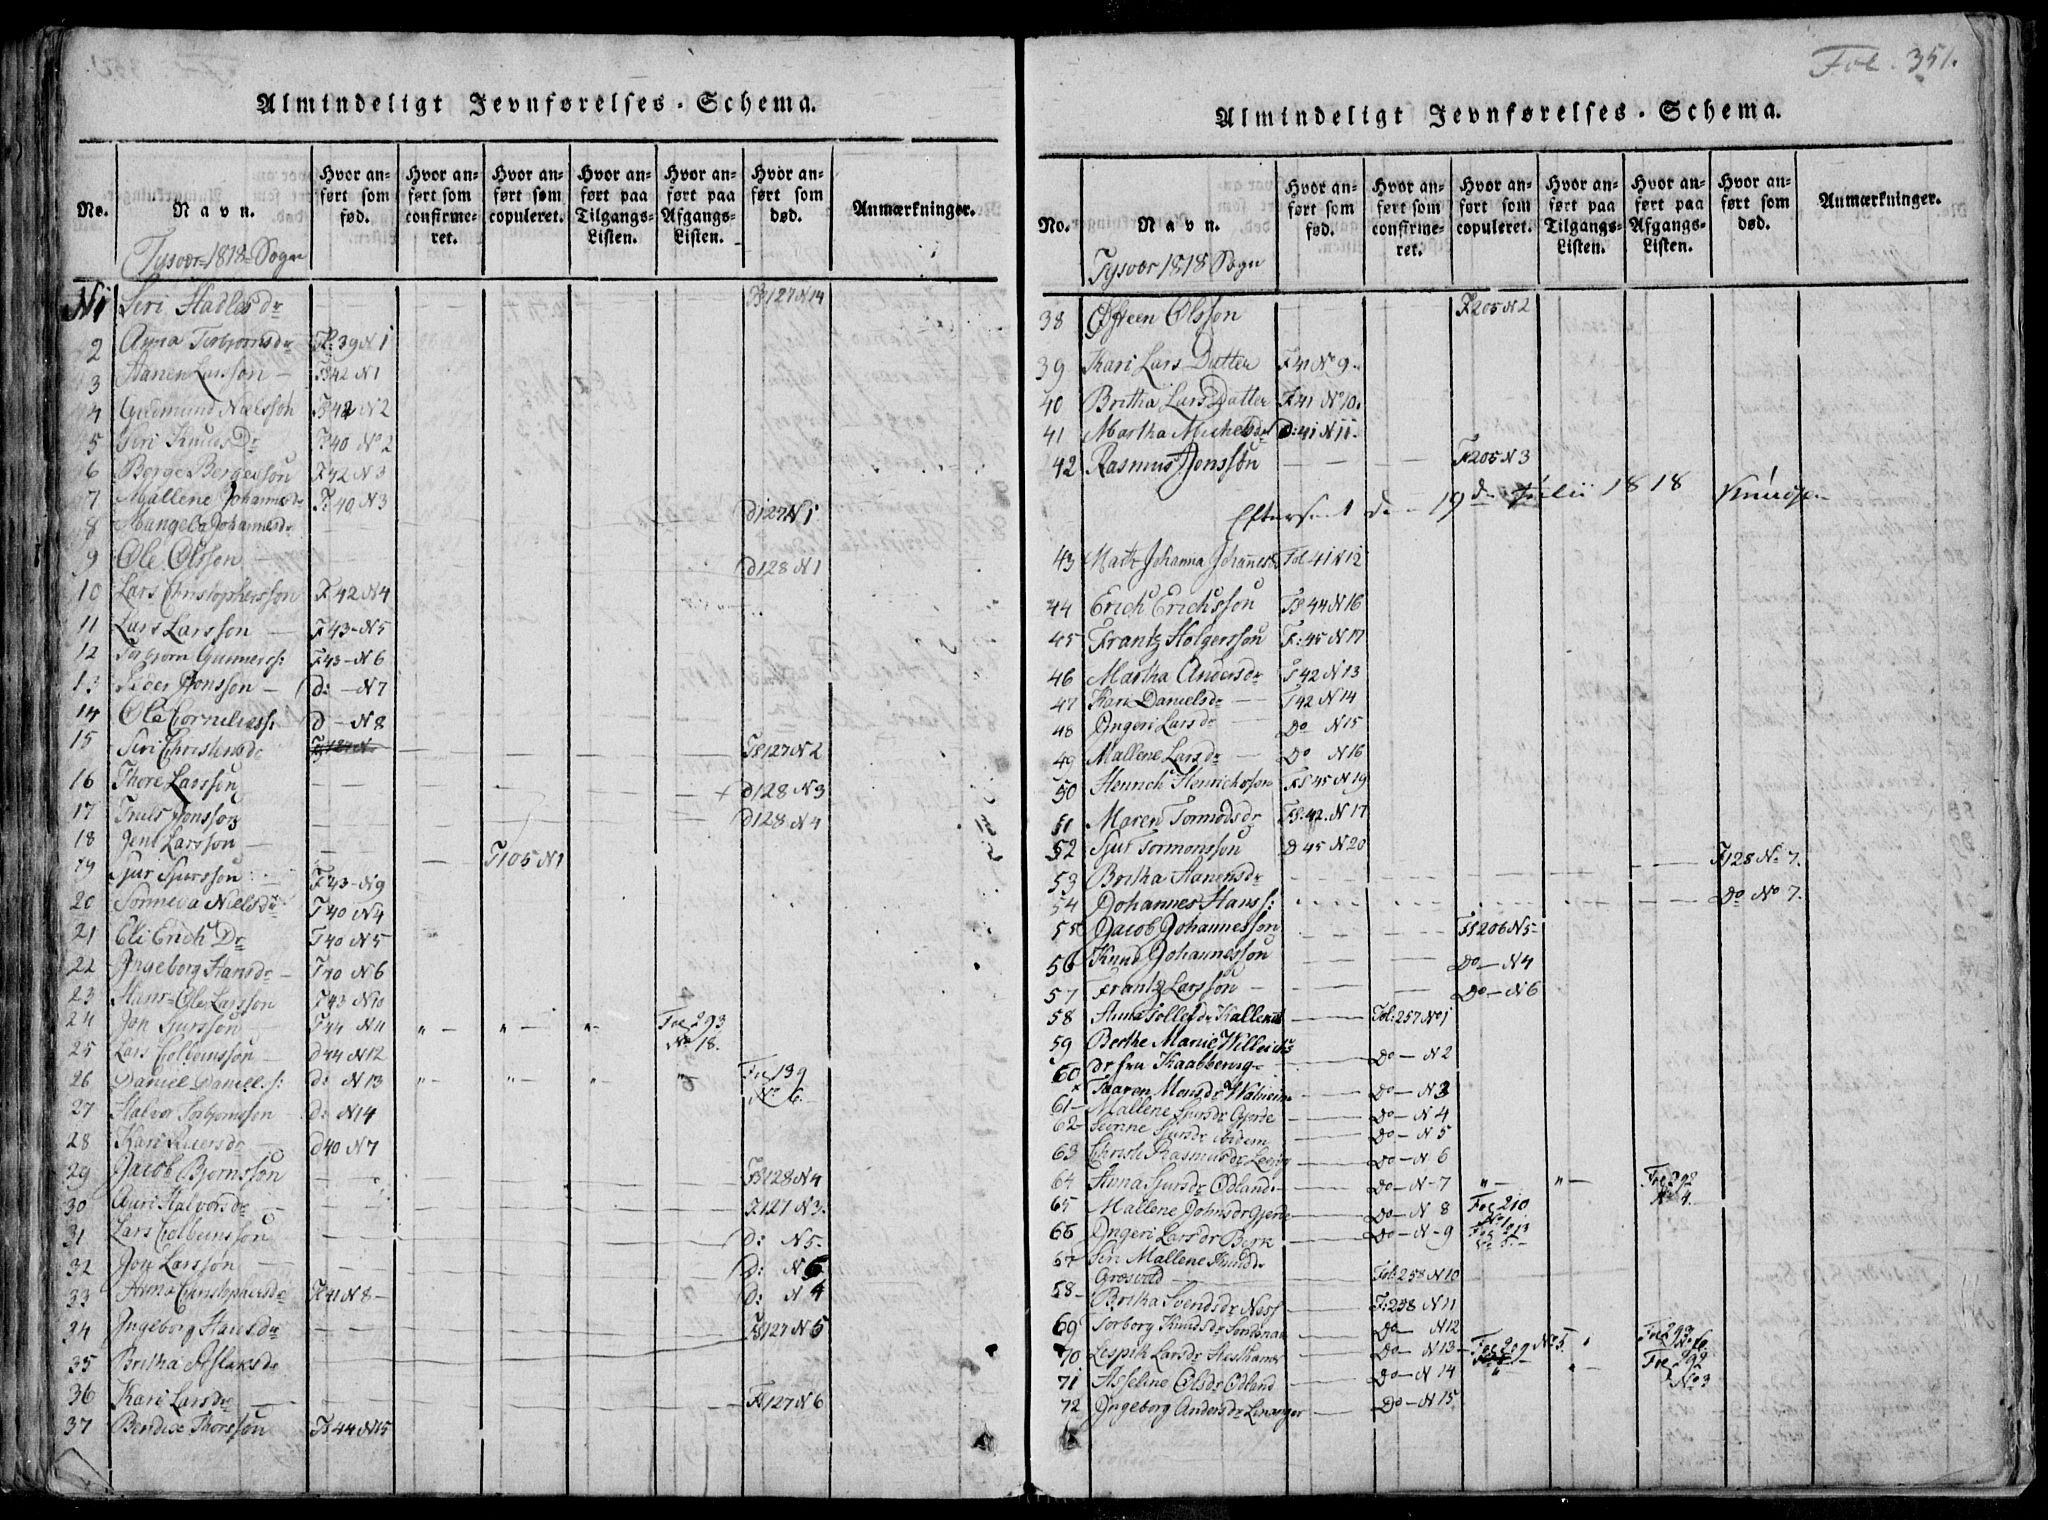 Almindeligt Jevnførelses-Schema.
No. Navn. Hvor anført som fød. Hvor anført som confirmeret. Hvor anført som copuleret. Hvor anført paa Tilgangs-Listen. Hvor anført paa Afgangs-Listen. Hvor anført som død. Anmærkninger.
Tysvær 1818 Sogn
N1 Siri Hadlesdr Fl 127 N 14
2 Anna Torbjørnsdr Fl: 39 N 1
3 Hanen Larsson Fl 42 N 1
4 Gudmund Nielsson Fl 42 N 2
5 Siri Knuds Dr Fl 40 No 2
6 Børge Børgesson F 42 N 3
7 Mallene Johannesdr Fl 40 N 3
8 Mangela Johannesdr d 127 N 1
9 Ole Olsson d 128 N 1
10 Lars Christophersson F 42 N 4
11 Lars Larsson F 43 - N 5
12 Torbjørn Gunners: F 43 - N 6
13 Jonsson d: - N 7
14 Ole Corneliuss: d - N 8
15 Siri Christensdr Fl 127 N 2
16 Thore Larsson d 128 N 3
17 Truls Jonsson d 128 N 4
18 Jens Larsson F 105 N 1
19 Sjur Sjursson F 43 - N 9
20 Sønneva Nielsdr F 40 N 4
21 Eli Erich Dr F 40 N 5
22 Ingeborg Hansdr F 40 N 6
23 Hans Ole Larsson F 43 N 10
24 Jon Sjursson F 44 N 11 " " " Fol 293 No 18.
25 Lars Colbeinsson d 44 N 12
26 Daniel Daniels: d: N 13 " " " " Fol 139 No 6
27 Halvor Torbjørnsson d: N 14
28 Kari dr d 40 N 7
29 Jacob Bjørnsson Fl 128 N 4
30 Guri Halvorsdr F 127 N 3
31 Lars Colbeinsson d: N 5
32 Jon Larsson d: N 6
33 Anna Christophersdr Fl 41 N 8 d: N 4
34 Ingeborg Hansdr Fl 127 N 5
35 Britha Aslaksdr
36 Kari Larsdr Fl 127 N 6
37 Bendix Thorsson Fl 44 N 15
Fol. 351.
Almindeligt Jevnførelses-Schema.
No. Navn. Hvor anført som fød. Hvor anført som confirmeret. Hvor anført som copuleret. Hvor anført paa Tilgangs-Listen. Hvor anført paa Afgangs-Listen. Hvor anført som død. Anmærkninger.
Tysvær 1818 Sogn
38 Østeen Olsson F 205 N 2
39 Kari Lars Datter F 41 No 9
40 Britha Lars Datter F 41 No 10.
41 Martha Michelsdr d: 41 N 11
42 Rasmus Jonsson F 205 N 3
Efterseet d 19de Julii 1818
43 Johanna Johannesdr Fol 41 N 12
44 Erich Erichsson Fl 44 N 16
45 Frantz Holgersson F: 45 N 17
46 Martha Andersdr F 42 N 13
47 Kari Danielsdr F 42 N 14
48 Ingeri Larsdr Do N 15
49 Mallene Larsdr Do N 16
50 Henrich Henrichsson Fl 45 N 19
51 Maren Tormodsdr Fl: 42. N 17
52 Sjur Tormonsson D 45 N 20
53 Britha Hanensdr F 128 No 7.
54 Johannes Hans: Do No 7.
55 Jacob Johannesson Fl 206 N 5
56 Knud Johannesson Do - N 4
57 Frantz Larsson Do - N 6
58 Anna dr Fol: 257 No 1
59 Berthe Marie
60 dr fra Do - N 2
Monsdr Do - N 3
61 Mallene Sjursdr Gjerde Do - N 4
62 Sjursdr ibidem Do - N 5
63 Rasmusdr Do - N 6
64 Anna Sjursdr Ødland Do - N - 7 " " Fol 292 No 4.
65 Mallene Johnsdr Gjerde Do - N 8 Fol 210
66 Ingeri Larsdr Do - N - 9
67 Siri Mallene Knudsdr
Fol: 258 N 10
58 Britha Svendsdr Ness F: 258 N 11
69 Torborg Knudsdr Do N 12
70 Larsdr Do - N 13 Fol 209 No 5. Fol 293
71 Asseline Olsdr Ødland Do - N 14 " " Fol 292 No 3
72 Ingeborg Andersdr Do - N 15